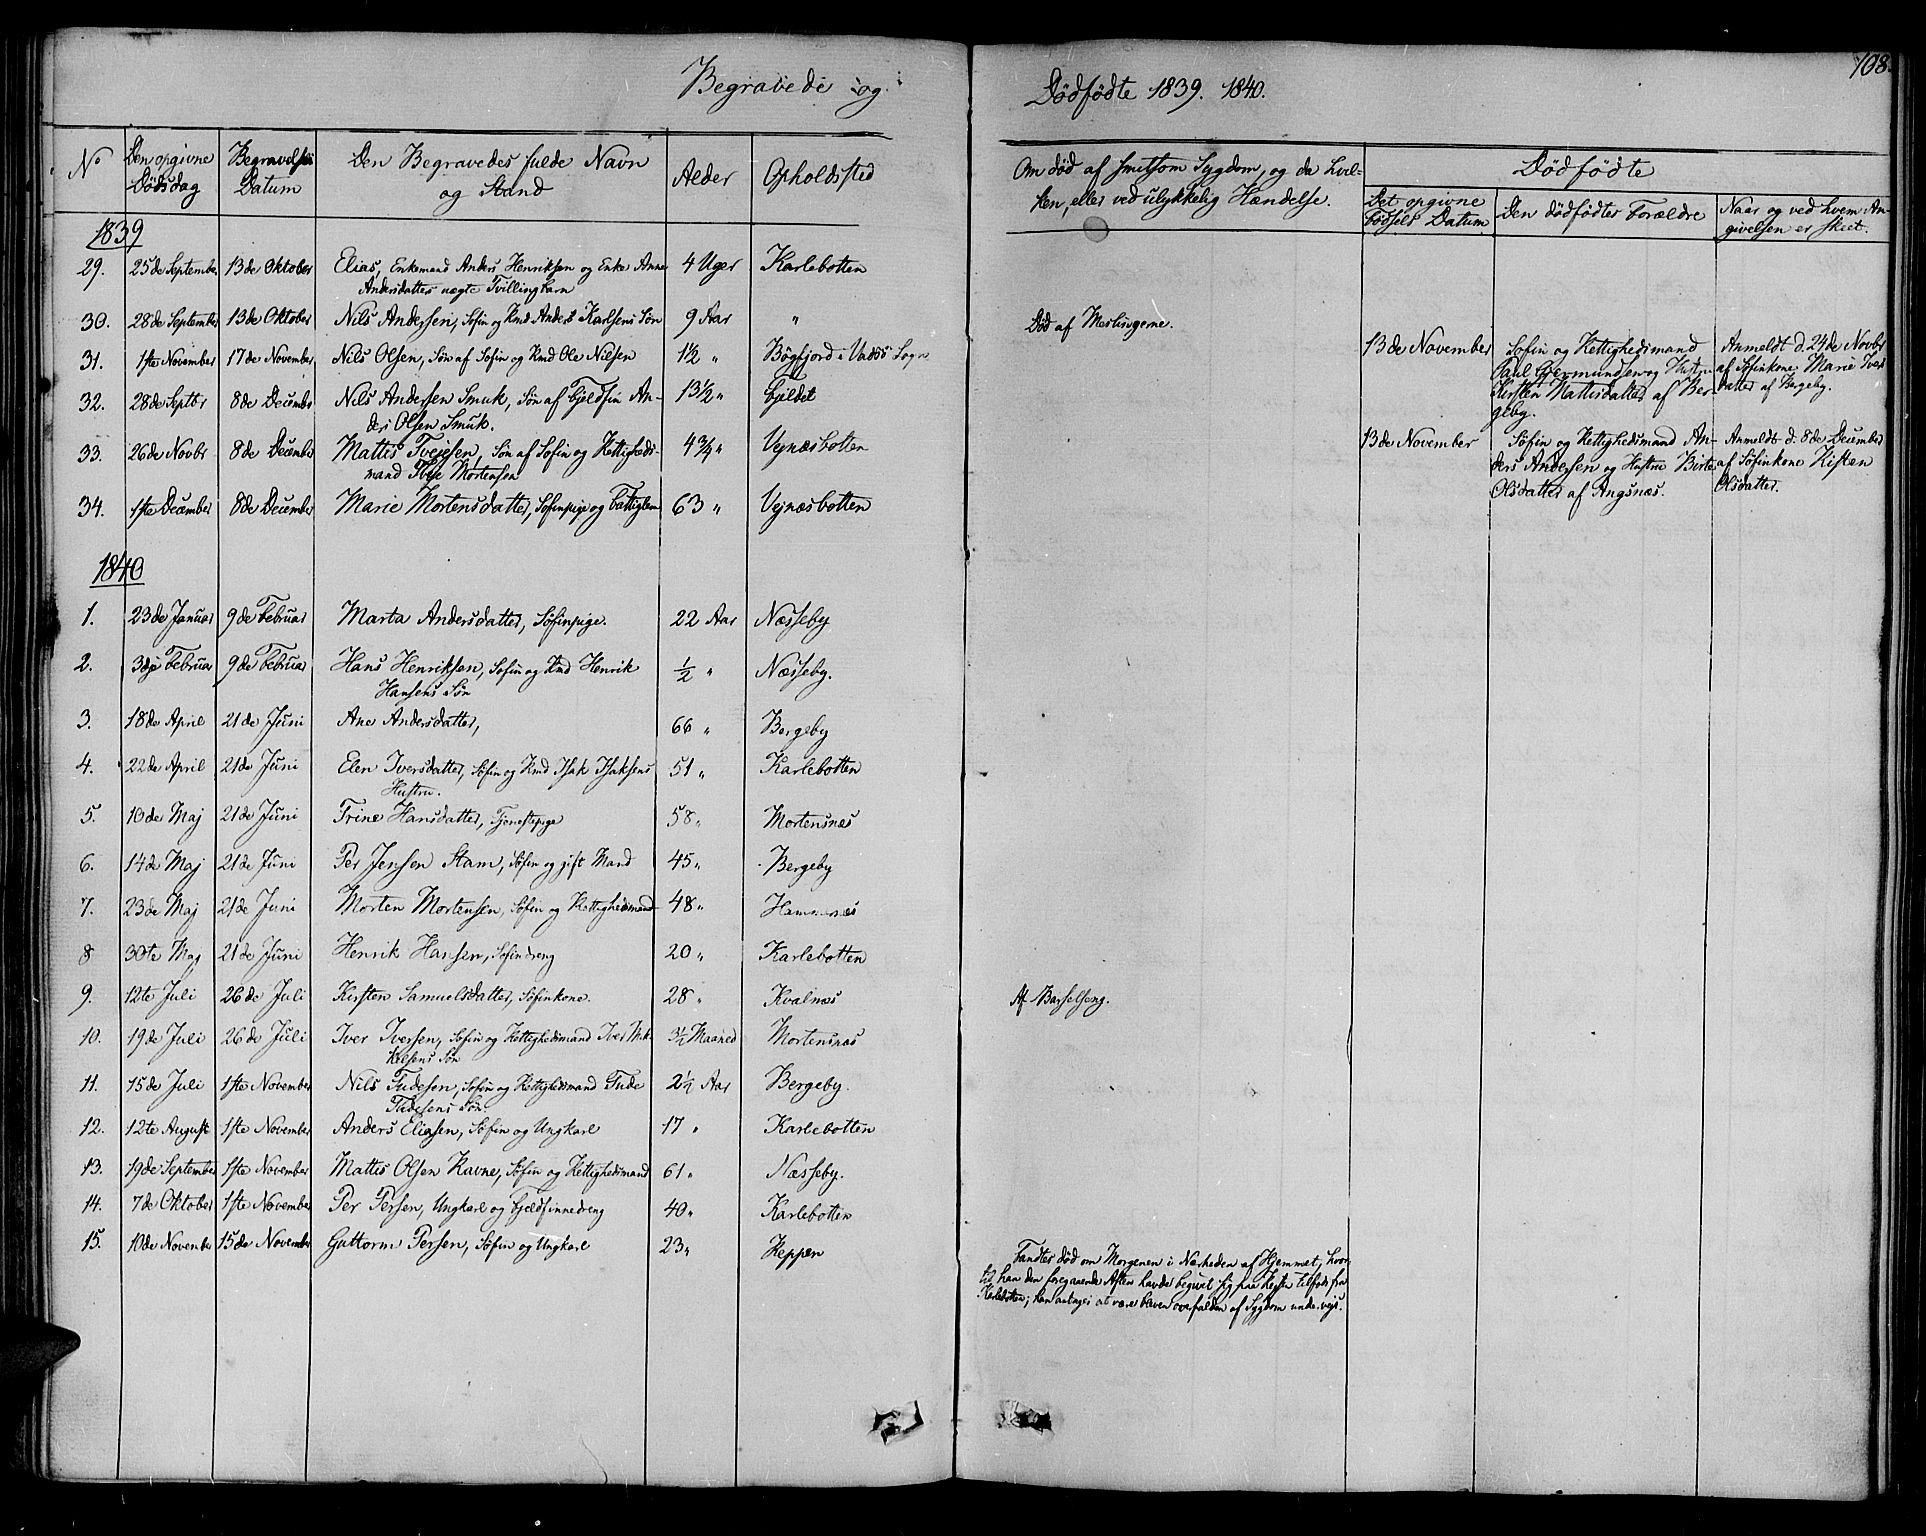 Begravede og
Dödfödte 1839. 1840.
108.
No
Den opgivne
Dödsdag
Begravelses
Datum
Den Begravedes fulde Navn
og Stand
Alder
Opholdssted
Om död af smitsom Sygdom, og da hvil-
ken, eller ved ulykkelig Hændelse.
Dödfödte
Det opgivne
Födsels Datum
Den dödfödtes Forældre
Naar og ved hvem An-
givelsen er skeet.
1839
29. 25de September 13de Oktober Elias, Enkemand Anders Henriksen og Enke Anne 4 Uger Karlebotten
Andersdatters uægte Tvillingbarn
30. 28de September 13de Oktober Nils Andersen, Söfin og Kmd Anders Karlsens Sön 9 Aar " Död af Meslingerne.
31. 1ste November 17de November Nils Olsen, Sön af Söfin og Kmd Ole Nilsen 1½ " Bögfjord i Vadsö Sogn
32. 28de Septbr 8de Decembr Nils Andersen Smuk, Sön af Fjeldfin An- 13½ " Fjeldet
ders Olsen Smuk.
33. 26de Novbr 8de Decembr Mattis Tveisen, Sön af Söfin og Rettigheds- 4¾ " Vejnæsbotten
mand Mortensen
34. 1ste December 8de December Marie Mortensdatter, Söfinpige og Fattiglem 63 " Vejnæsbotten
13de November Söfin og Rettighedsmand Anmeldt d. 24de Novbr
Paul Gjermundsen og Hustru af Söfinkone Marie Iversdatter
Kirsten Mattisdatter af Ber- af Bergeby.
geby.
13de November Söfin og Rettighedsmand An- Anmeldt d. 8de December
ders Andersen og Hustru Birte af Söfinkone Kisten
Olsdatter af Angsnæs. Olsdatter.
1840
1. 23de Januar 9de Februar Marta Andersdatter, Söfinpige. 22 Aar Næsseby
2. 3die Februar 9de Februar Hans Henriksen, Söfin og Kmd Henrik ½ " Næsseby.
Hansens Sön
3. 18de April 21de Juni Ane Andersdatter, 66 " Bergeby
4. 22de April 21de Juni Elen Iversdatter, Söfin og Kmd Isak Isaksens 51 " Karlebotten
Hustru.
5. 10de Maj 21de Juni Trine Hansdatter, Tjenestepige 58 " Mortensnæs
6. 14de Maj 21de Juni Per Jensen Stam, Söfin og gift Mand 45 " Bergeby
7. 23de Maj 21de Juni Morten Mortensen, Söfin og Rettighedsmand 48 " Hammernæs
8 30te Maj 21de Juni Henrik Hansen, Söfindreng 20 " Karlebotten
9. 12te Juli 26de Juli Kirsten Samuelsdatter, Söfinkone. 28 " Kvalnæs Af Barselseng.
10. 19de Juli 26de Juli Iver Iversen, Söfin og Rettighedsmand Iver Mik- 3½ Maaned Mortensnæs
kelsens Sön
11. 15de Juli 1ste November Nils Tudesen, Söfin og Rettighedsmand Tude 2½ Aar Bergeby.
Tudesens Sön.
12. 12te August 1ste November Anders Eliasen, Söfin og Ungkarl 17 " Karlebotten
13. 19de September 1ste November Mattis Olsen Ravne, Söfin og Rettighedsmand 61 " Næsseby.
14. 7de Oktober 1ste November Per Persen, Ungkarl og Fjeldfinnedreng 40 " Karlebotten
15. 10de November 15de November Guttorm Persen, Söfin og Ungkarl 23 " Keppen
Fandtes död om Morgenen i Nærheden af Hjemmet, hvor-
til han den foregaaende Aften havde begivet sig paa Rejsen tilfods fra
Karlebotten; han antages at være bleven overfalden af Sygdom undervejs.